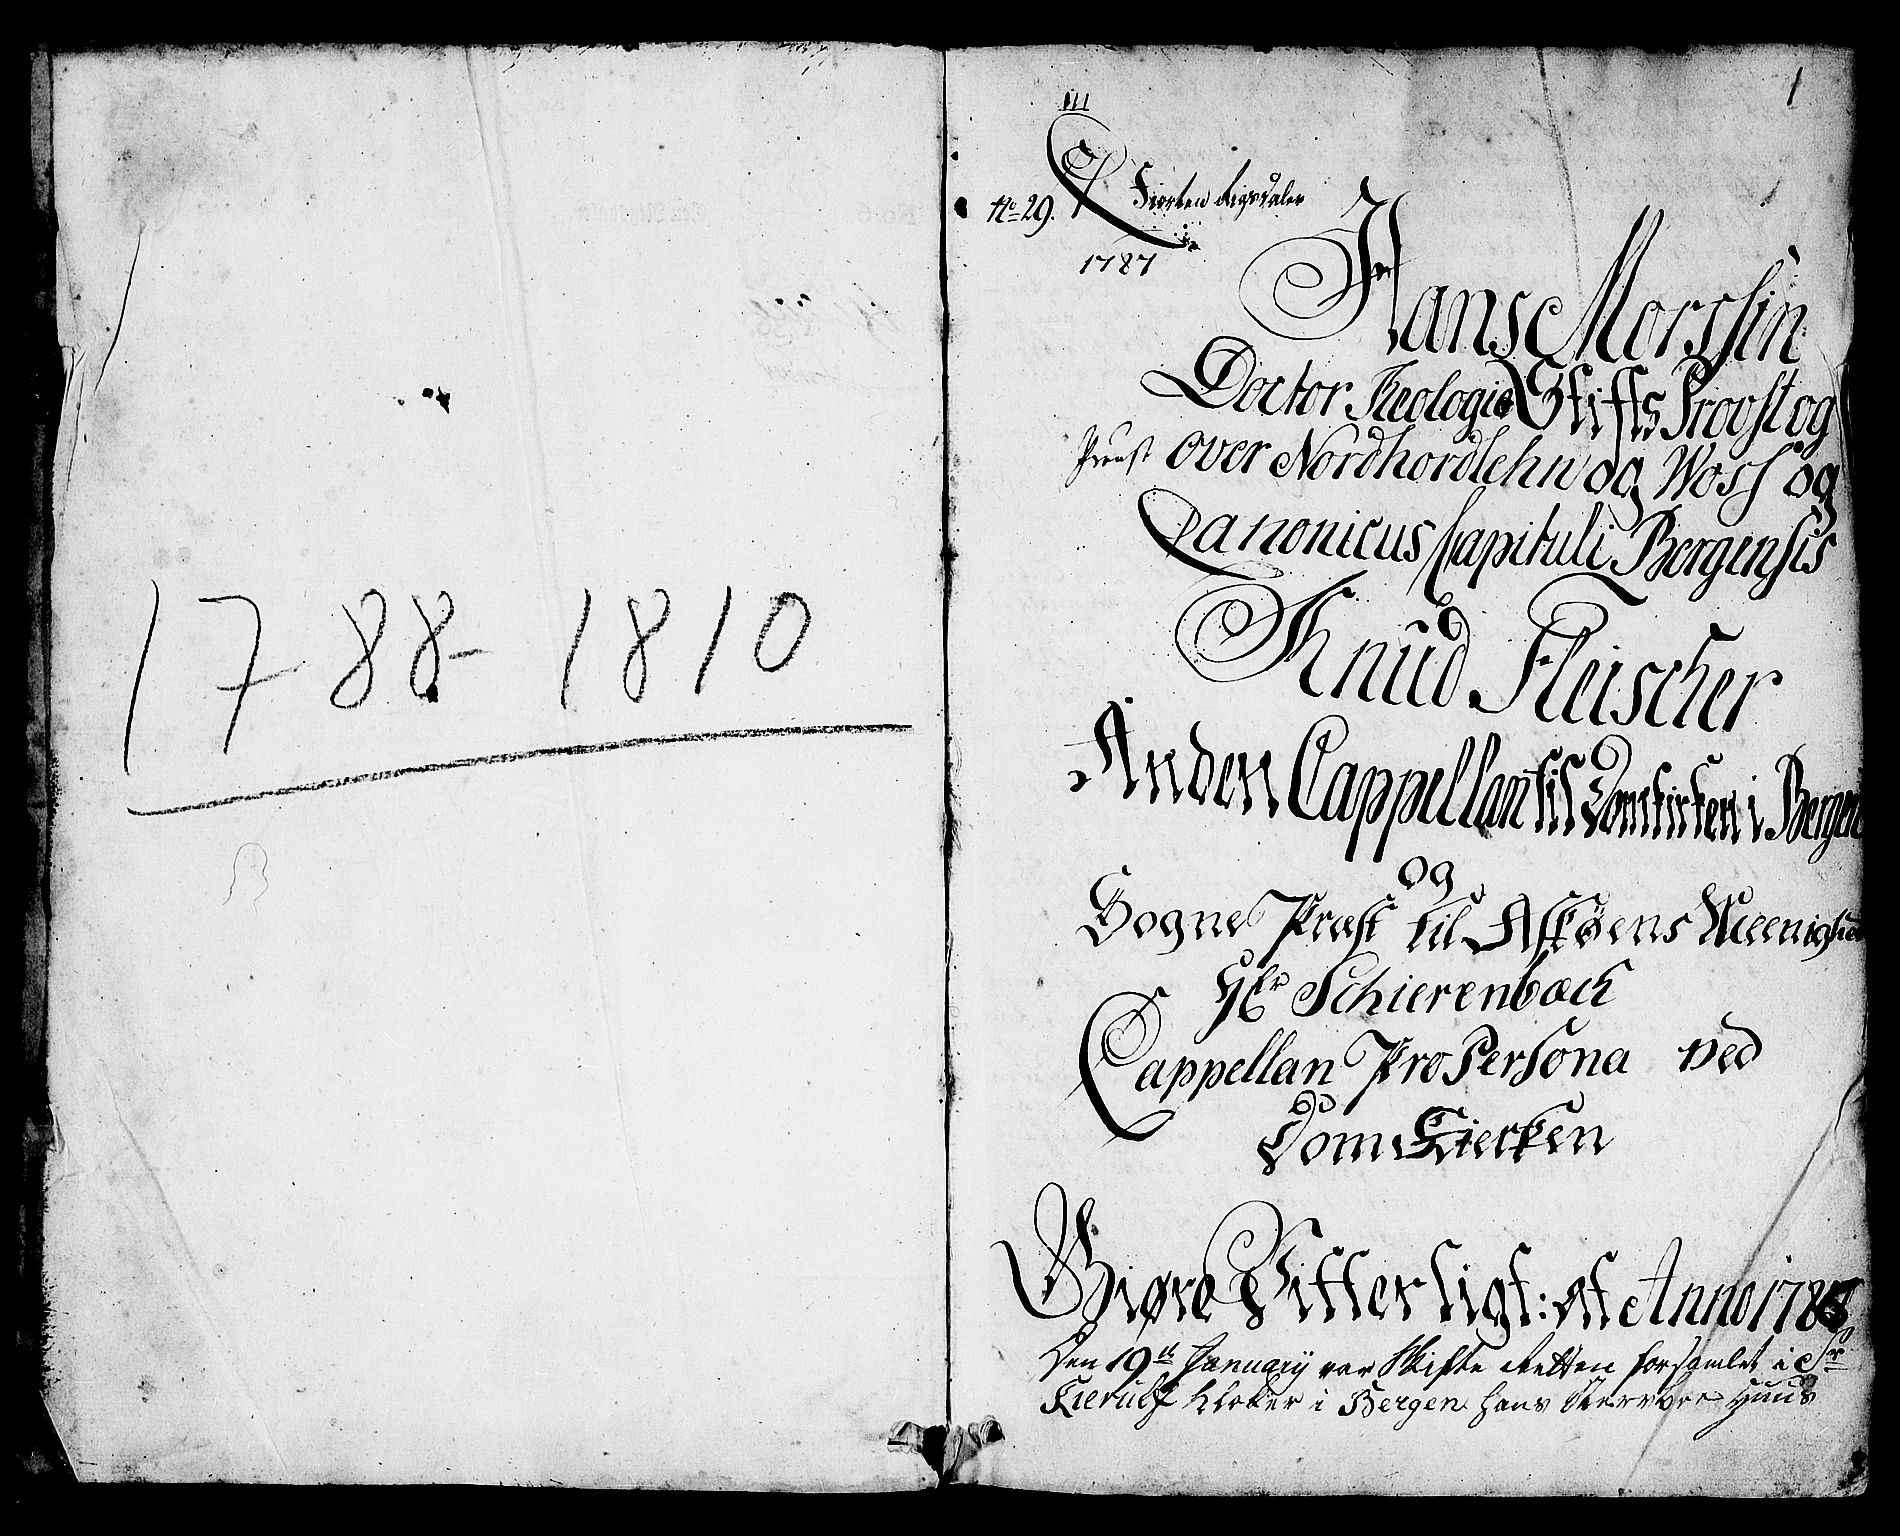 1788-1810
1
No 29.
Fiorten Rigsdaler
1787
Hans Morssin
Doctor Theologie Stifts Provst og
Provst over Nordhordlehn og Woss og
Canonicus Capituli Bergensis
Knud Fleischer
Anden Cappellan til Domkirken i Bergen
og
Sogne Præst til Askøens Meenighed
Hr Schierenbæck
Cappellan Pro Persona ved
Dom Kierken
Giøre Vitterligt: at Anno 1788
Den 19de January var Skifte Retten forsamlet i Sr
Kierulf Kloker i Bergen hans Huus